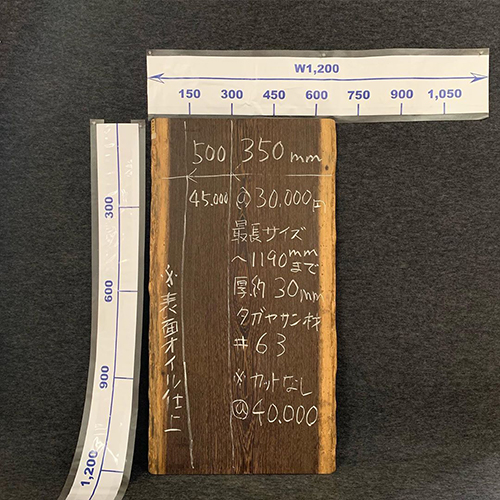 W1,200
150 300 450 600 750 900 1,050
300
600
900
1,200
500 350mm
45.000 @30.000円
最長サイズ
〜1190mmまで
厚約30mm
タガヤサン材
#63
※カットなし
@40.000
※表面オイル仕上